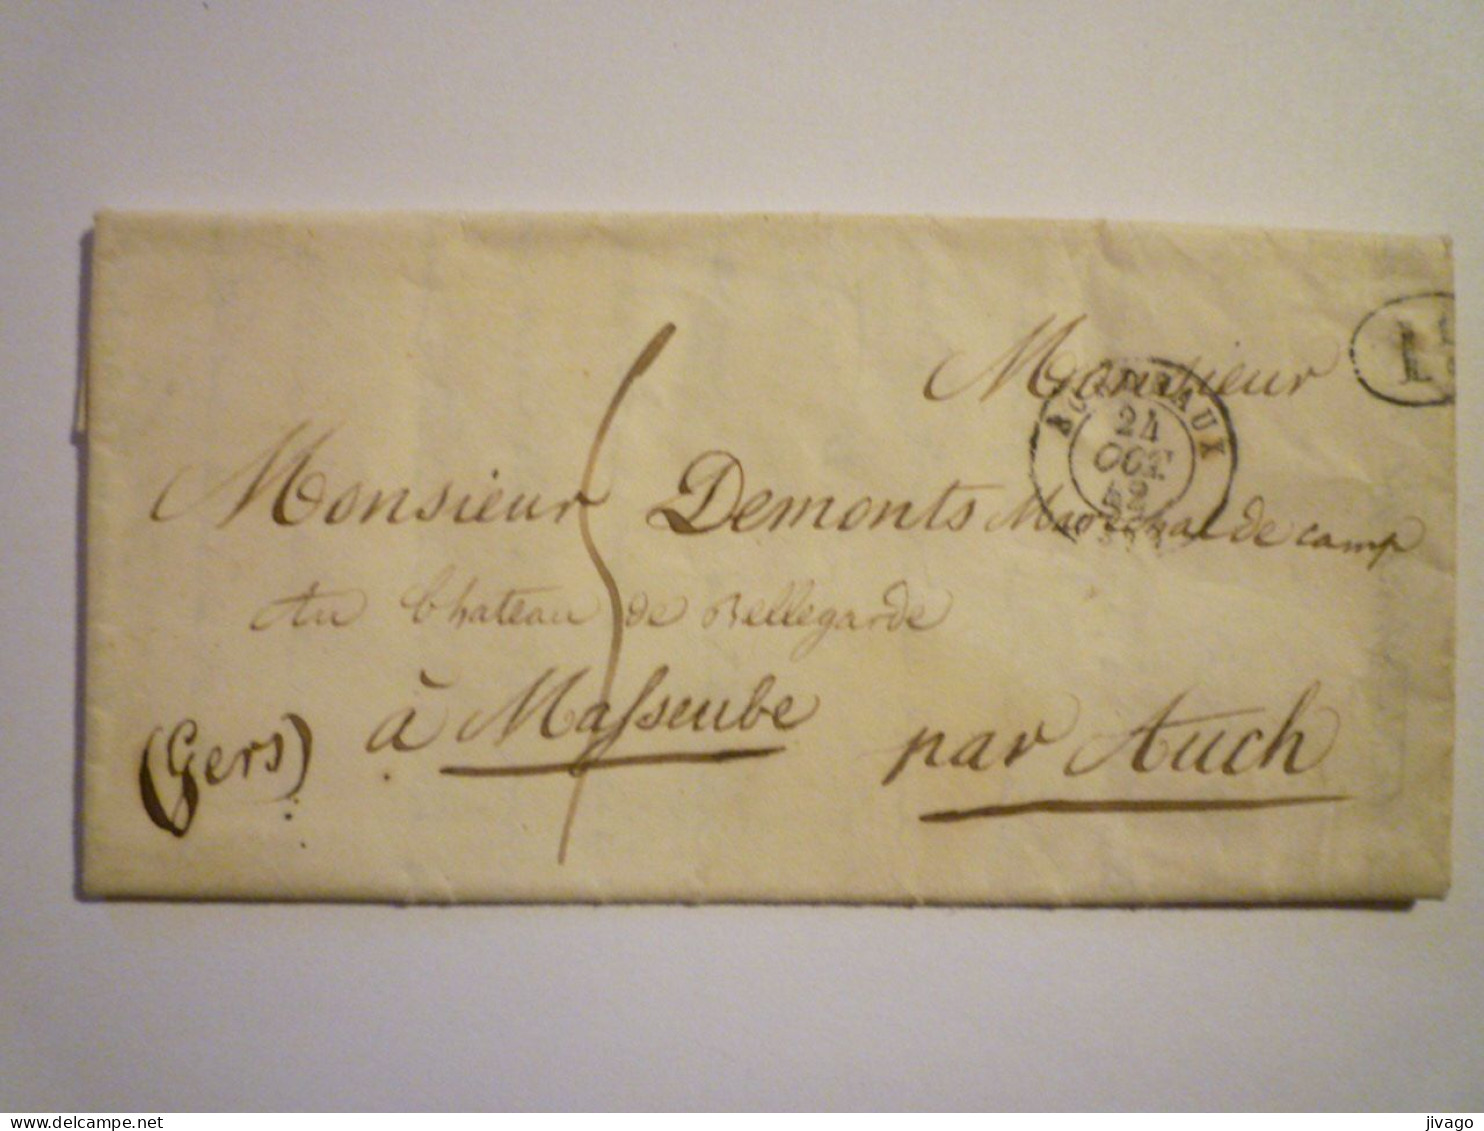 Monsieur
Monsieur Demonts Marechal de camp
Au Chateau de Bellegarde
à Masseube
(Gers)
par Auch
BORDEAUX
24
OCT.
delcampe.net
jivago